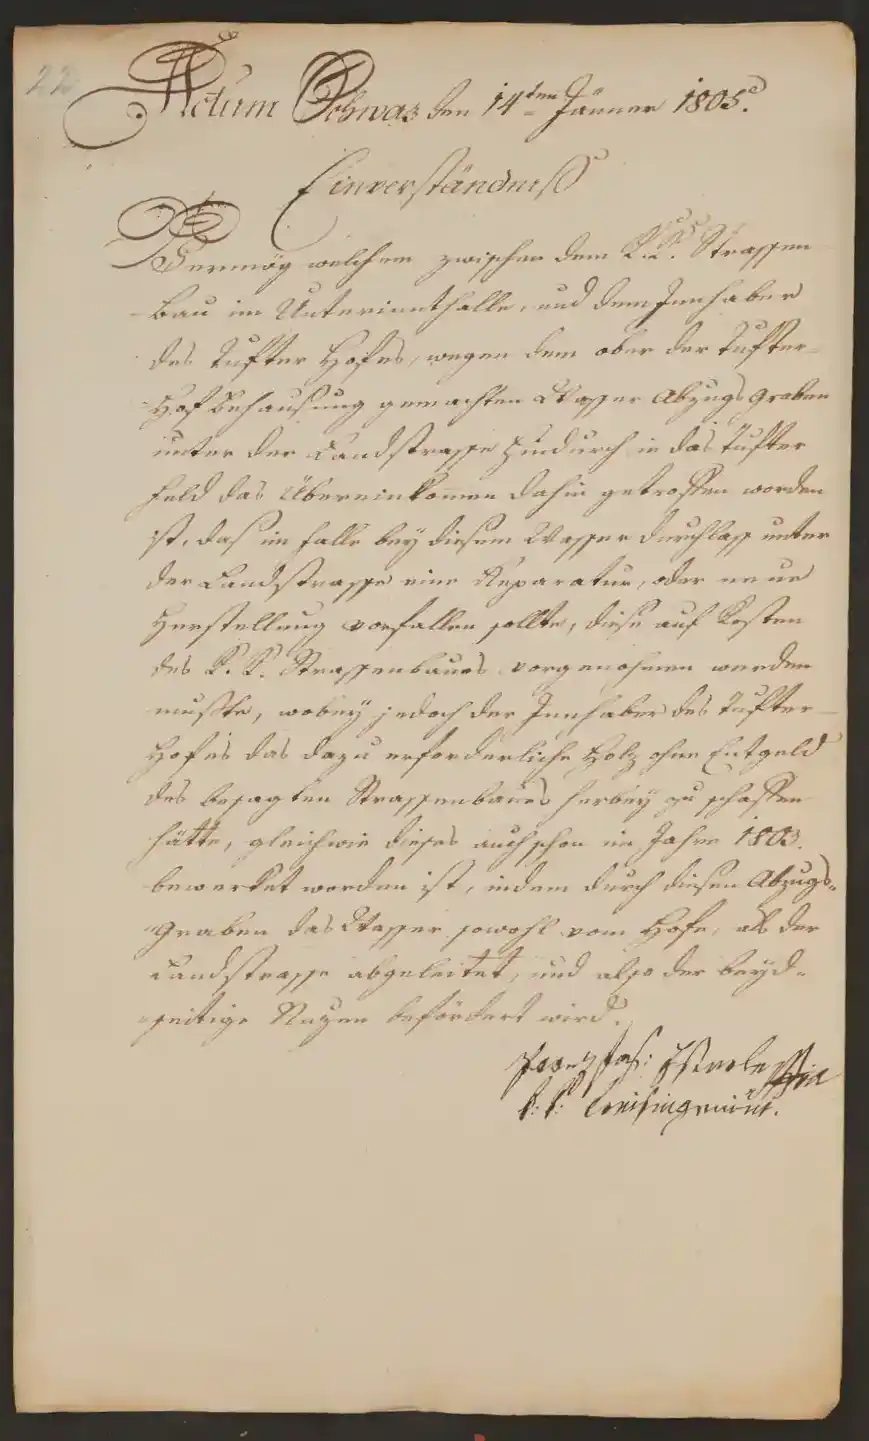 22
Actum Schwaz den 14ten Jänner 1805.
Einverständniß
Vermög welchem zwischen dem K. K. Strassen
Bau im Unterinnthalle, und dem Innhaber
des Tufter Hofes, wegen dem ober der Tufter-
Hof Behausung gemachten Wasser Abzugs Graben
unter der Landstrasse hindurch in das Tufter
Feld das Übereinkomen dahin getroffen worden
ist, daß im Falle bey diesem Wasser Durchlass unter
der Landstrasse eine Reparatur, oder neue
Herstellung vorfallen sollte, diese auf Kosten
des K. K. Strassenbaues vorgenohmen werden
mußte, wobey jedoch der Innhaber des Tufter-
Hofes das dazu erforderliche Holz ohne Entgeld
des besagten Strassenbaues herbey zu schaffen
hätte, gleichwie dieses auch schon im Jahre 1803.
bewerket worden ist, indem durch diesen Abzugs-
Graben das Wasser sowohl vom Hofe, als der
Landstrasse abgeleitet, und also der beyd-
seitige Nuzen befördert wird.
Jos:
k: k: Kreisingenieur.